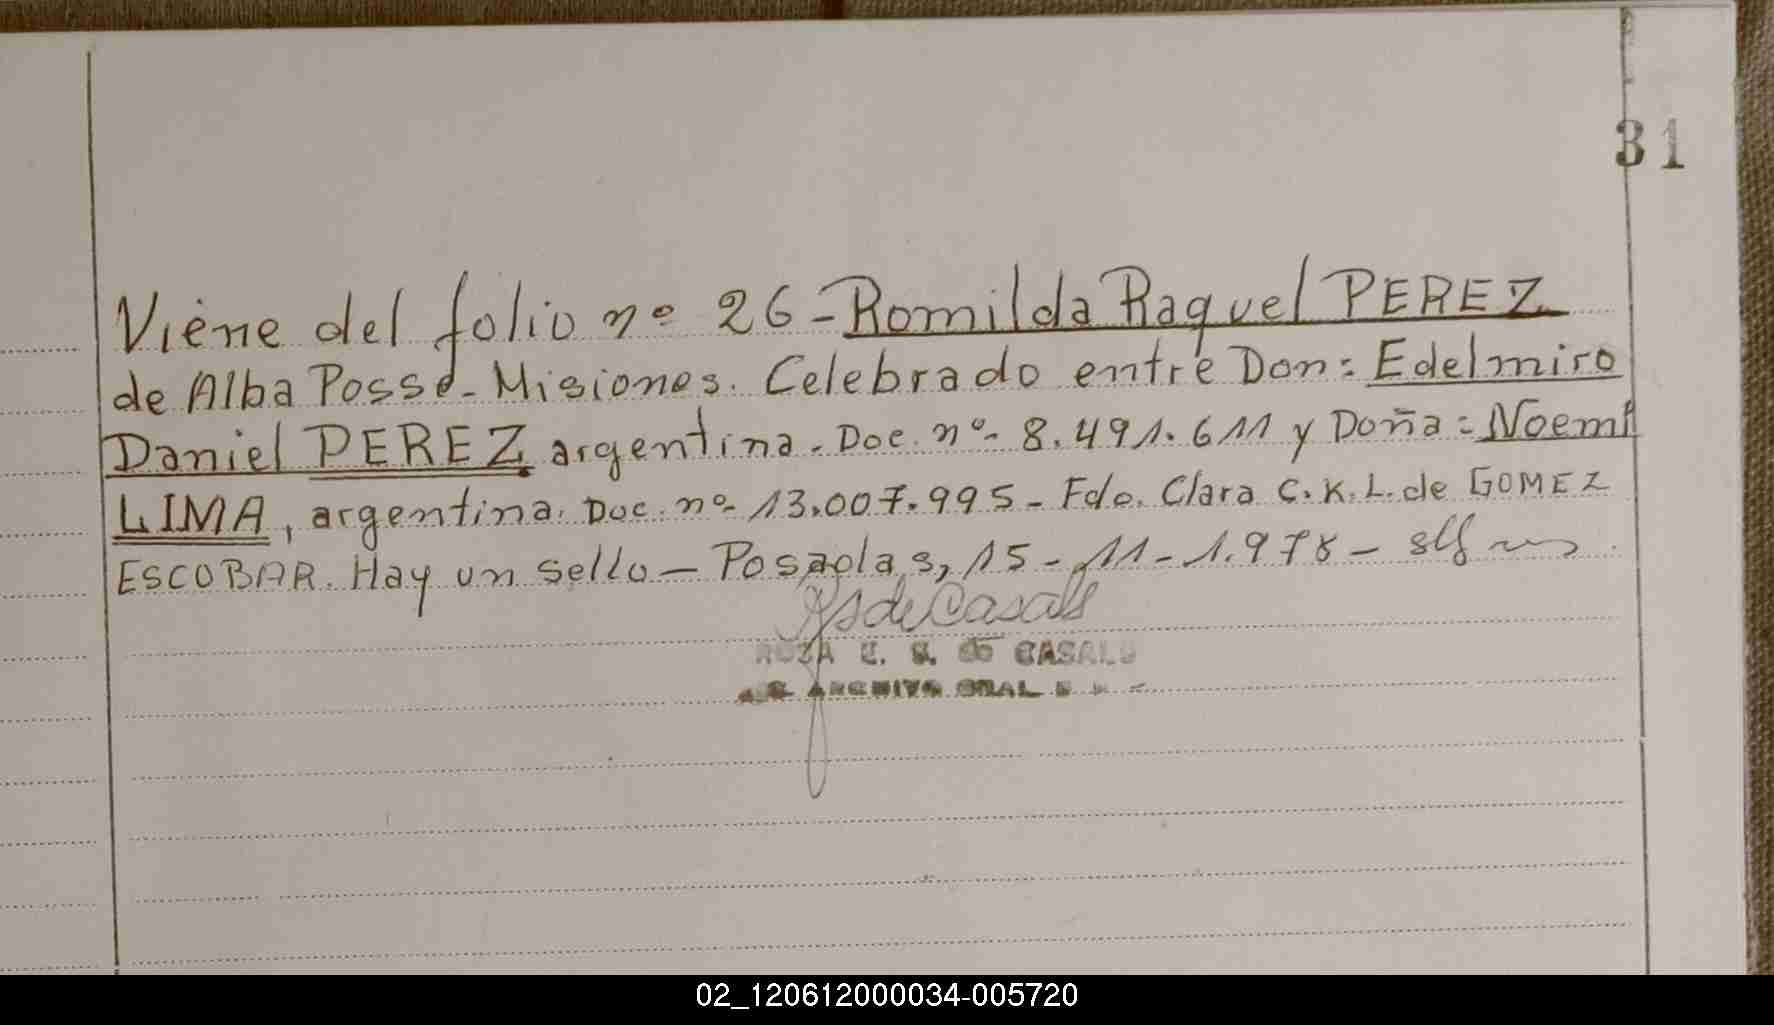 31
Viene del folio nº 26 - Romilda Raquel PEREZ
de Alba Posse - Misiones. Celebrado entre Don: Edelmiro
Daniel PEREZ argentina. Doc. nº- 8.491.611 y Doña: Noemi
LIMA, argentina. Doc. nº- 13.007.995 - Fdo. Clara C.K.L. de GOMEZ
ESCOBAR. Hay un sello - Posadas, 15-11-1.978 -
de Casals
C. S. de CASALS
ARCHIVO GRAL
02_120612000034-005720